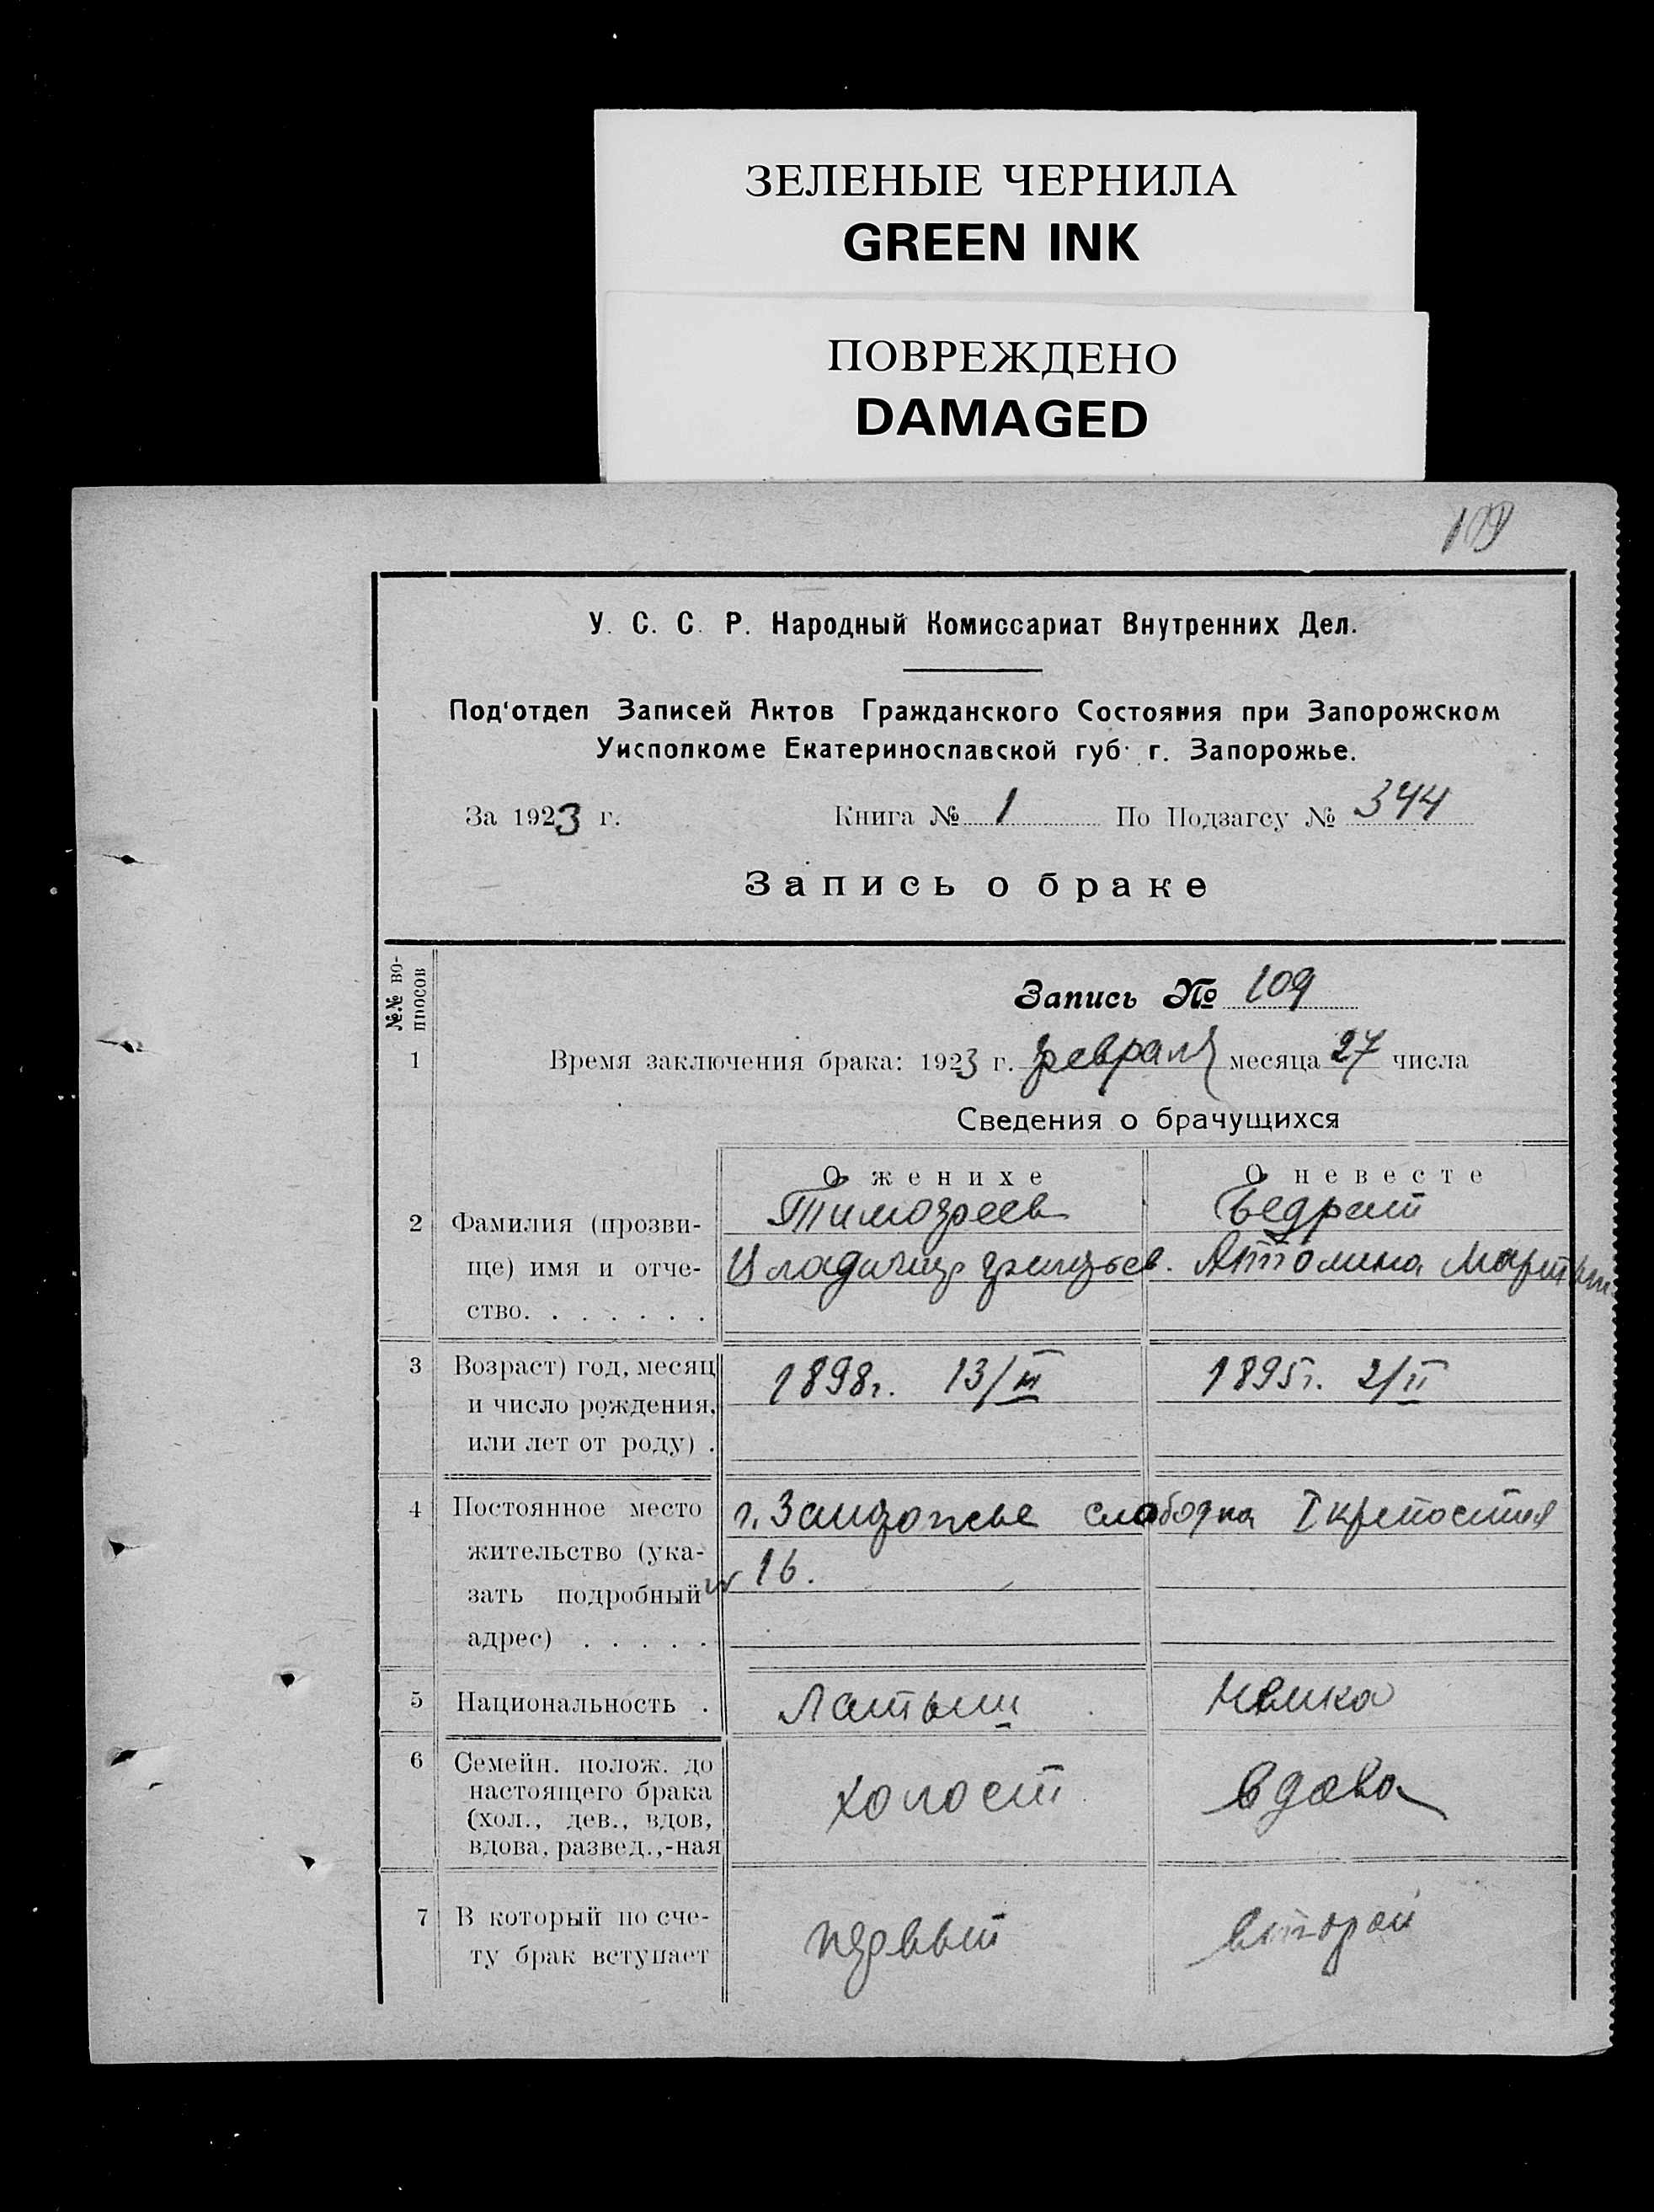 ЗЕЛЕНЫЕ ЧЕРНИЛА
GREEN INK
ПОВРЕЖДЕНО
DAMAGED
109
У. С. С. Р. Народный Комиссариат Внутренних Дел.
Под'отдел Записей Актов Гражданского Состояния при Запорожском
Уисполкоме Екатеринославской губ. г. Запорожье.
За 1923 г. Книга № 1 По Подзагсу № 344
Запись о браке
№№ во-
просов
Запись № 109
1 Время заключения брака: 1923 г. февраля месяца 27 числа
Сведения о брачущихся
О женихе О невесте
2 Фамилия (прозви-
ще) имя и отче-
ство. . . . . . .
Тимофеев
Владимир
Антолина Мартын
3 Возраст) год, месяц
и число рождения,
или лет от роду) .
1898г. 13/III 1895г. 2/II
4 Постоянное место
жительство (ука-
зать подробный
адрес) . . . . .
г. Запорожье слободка I крепостная
№ 16.
5 Национальность . Латыш Немка
6 Семейн. полож. до
настоящего брака
(хол., дев., вдов,
вдова, развед.,-ная
холост вдова
7 В который по сче-
ту брак вступает
первый второй